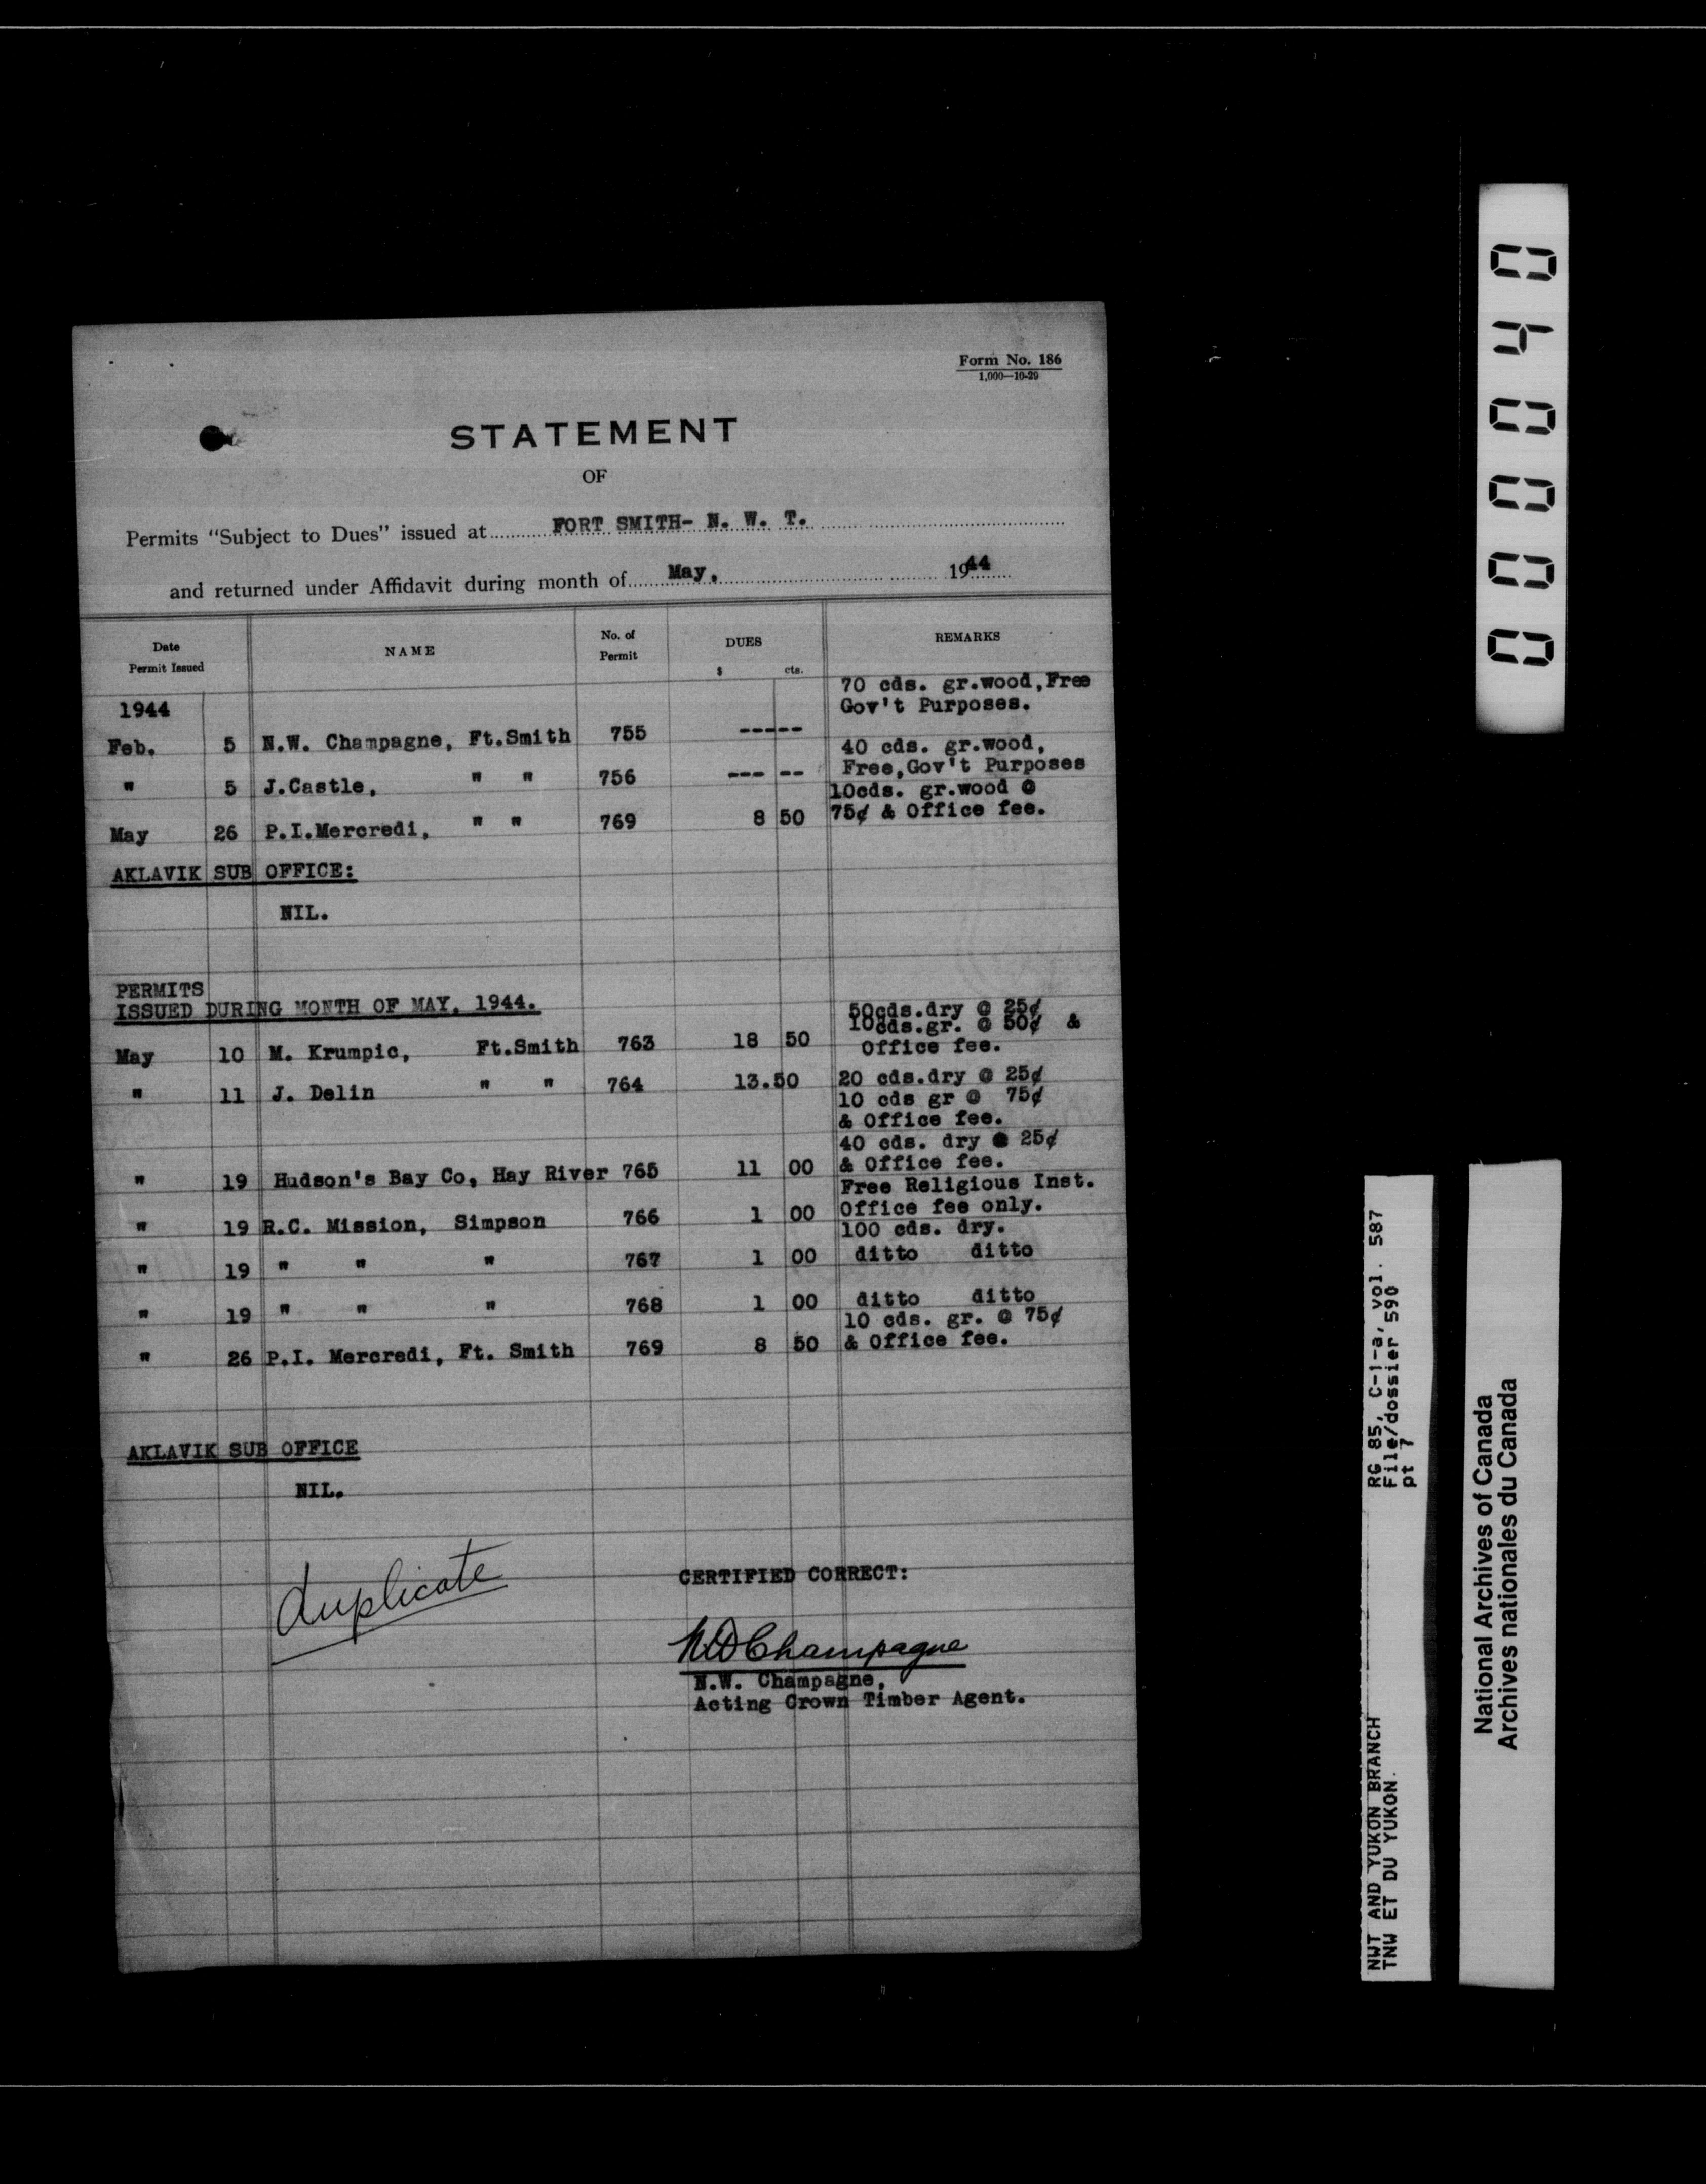 Form No. 186
1,000—10-29
STATEMENT
OF
Permits "Subject to Dues" issued at FORT SMITH- N. W. T.
and returned under Affidavit during month of May, 1944
Date Permit Issued NAME No. of Permit DUES $ cts. REMARKS
1944
70 cds. gr.wood,Free
Gov't Purposes.
Feb. 5 N.W. Champagne, Ft.Smith 755 --- --
40 cds. gr.wood,
Free,Gov't Purposes
" 5 J.Castle, " " 756 --- --
10cds. gr.wood @
75¢ & Office fee.
May 26 P.I.Mercredi, " " 769 8 50
AKLAVIK SUB OFFICE:
NIL.
PERMITS
ISSUED DURING MONTH OF MAY, 1944.
50cds.dry @ 25¢
10cds.gr. @ 50¢ &
Office fee.
May 10 M. Krumpic, Ft.Smith 763 18 50
" 11 J. Delin " " 764 13.50 20 cds.dry @ 25¢
10 cds gr @ 75¢
& Office fee.
40 cds. dry @ 25¢
& Office fee.
" 19 Hudson's Bay Co, Hay River 765 11 00
Free Religious Inst.
Office fee only.
100 cds. dry.
" 19 R.C. Mission, Simpson 766 1 00
" 19 " " " 767 1 00 ditto ditto
" 19 " " " 768 1 00 ditto ditto
10 cds. gr. @ 75¢
& Office fee.
" 26 P.I. Mercredi, Ft. Smith 769 8 50
AKLAVIK SUB OFFICE
NIL.
duplicate
CERTIFIED CORRECT:
NW Champagne
N.W. Champagne,
Acting Crown Timber Agent.
000040
RG 85, C-1-a, vol. 587
File/dossier 590
pt 7
NWT AND YUKON BRANCH
TNW ET DU YUKON.
National Archives of Canada
Archives nationales du Canada